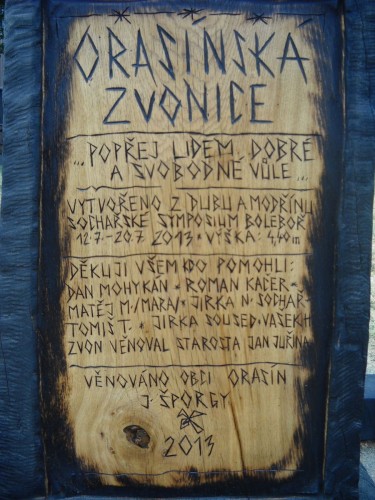 ORASÍNSKÁ
ZVONICE
"...POPŘEJ LIDEM DOBRÉ
A SVOBODNÉ VŮLE..."
VYTVOŘENO Z DUBU A MODŘÍNU
SOCHAŘSKÉ SYMPOSIUM BOLEBOŘ
12.7.-20.7. 2013 · VÝŠKA: 4,40m
DĚKUJI VŠEM KDO POMOHLI:
DAN MOHYKÁN · ROMAN KACER·
MATĚJ M./MARA/· JIRKA N. SOCHAŘ·
TOMIS T. · JIRKA SOUSED· VAŠEK H
ZVON VĚNOVAL STAROSTA JAN JUŘINA
VĚNOVÁNO OBCI ORASÍN
J. ŠPORGY
2013